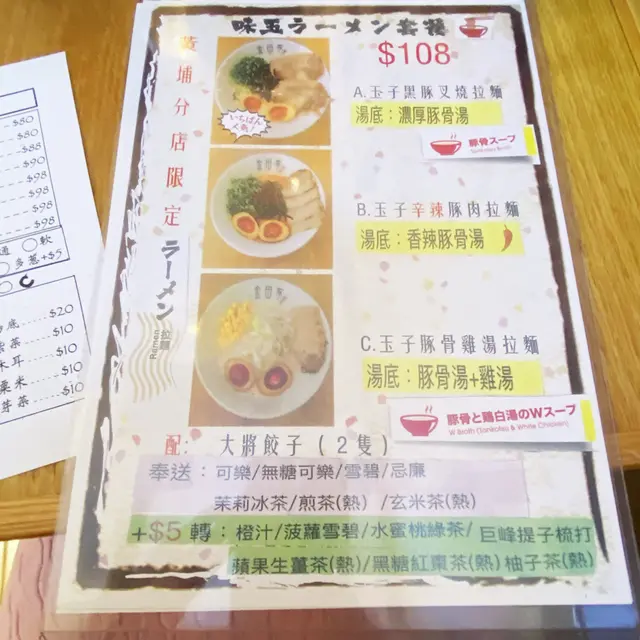 味玉ラーメン套餐
$108
黃埔分店限定
ラーメン
Ramen
いちばん
人気!
A.玉子黑豚叉燒拉麵
湯底：濃厚豚骨湯
豚骨スープ
Tonkotsu Broth
B.玉子辛辣豚肉拉麵
湯底：香辣豚骨湯
C.玉子豚骨雞湯拉麵
湯底：豚骨湯+雞湯
豚骨と鶏白湯のWスープ
W Broth (Tonkotsu & White Chicken)
配： 大將餃子(2隻)
奉送：可樂/無糖可樂/雪碧/忌廉
茉莉冰茶/煎茶(熱) /玄米茶(熱)
+$5 轉：橙汁/菠蘿雪碧/水蜜桃綠茶/巨峰提子梳打
蘋果生薑茶(熱)/黑糖紅棗茶(熱)柚子茶(熱)
$80
$80
$88
$90
$98
$98
$98
通 ○軟
○多蔥+$5
底.....$20
$10
木耳 $10
粟米 $10
芽菜 $10